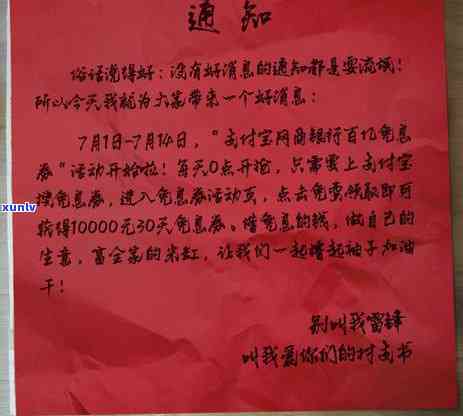 通知
俗话说得好：没有好消息的通知都是耍流氓！
所以今天我就为大家带来一个好消息：
7月1日-7月14日，“支付宝网商银行百亿免息
券“活动开始啦！每天0点开抢，只需要上支付宝
搜免息券，进入免息券活动页，点击免费领取即可
获得10000元30天免息券。借免息的钱，做自己的
生意，富全家的米缸，让我们一起撸起袖子加油
干！
别叫我雷锋
叫我爱你们的村支书
xunlv